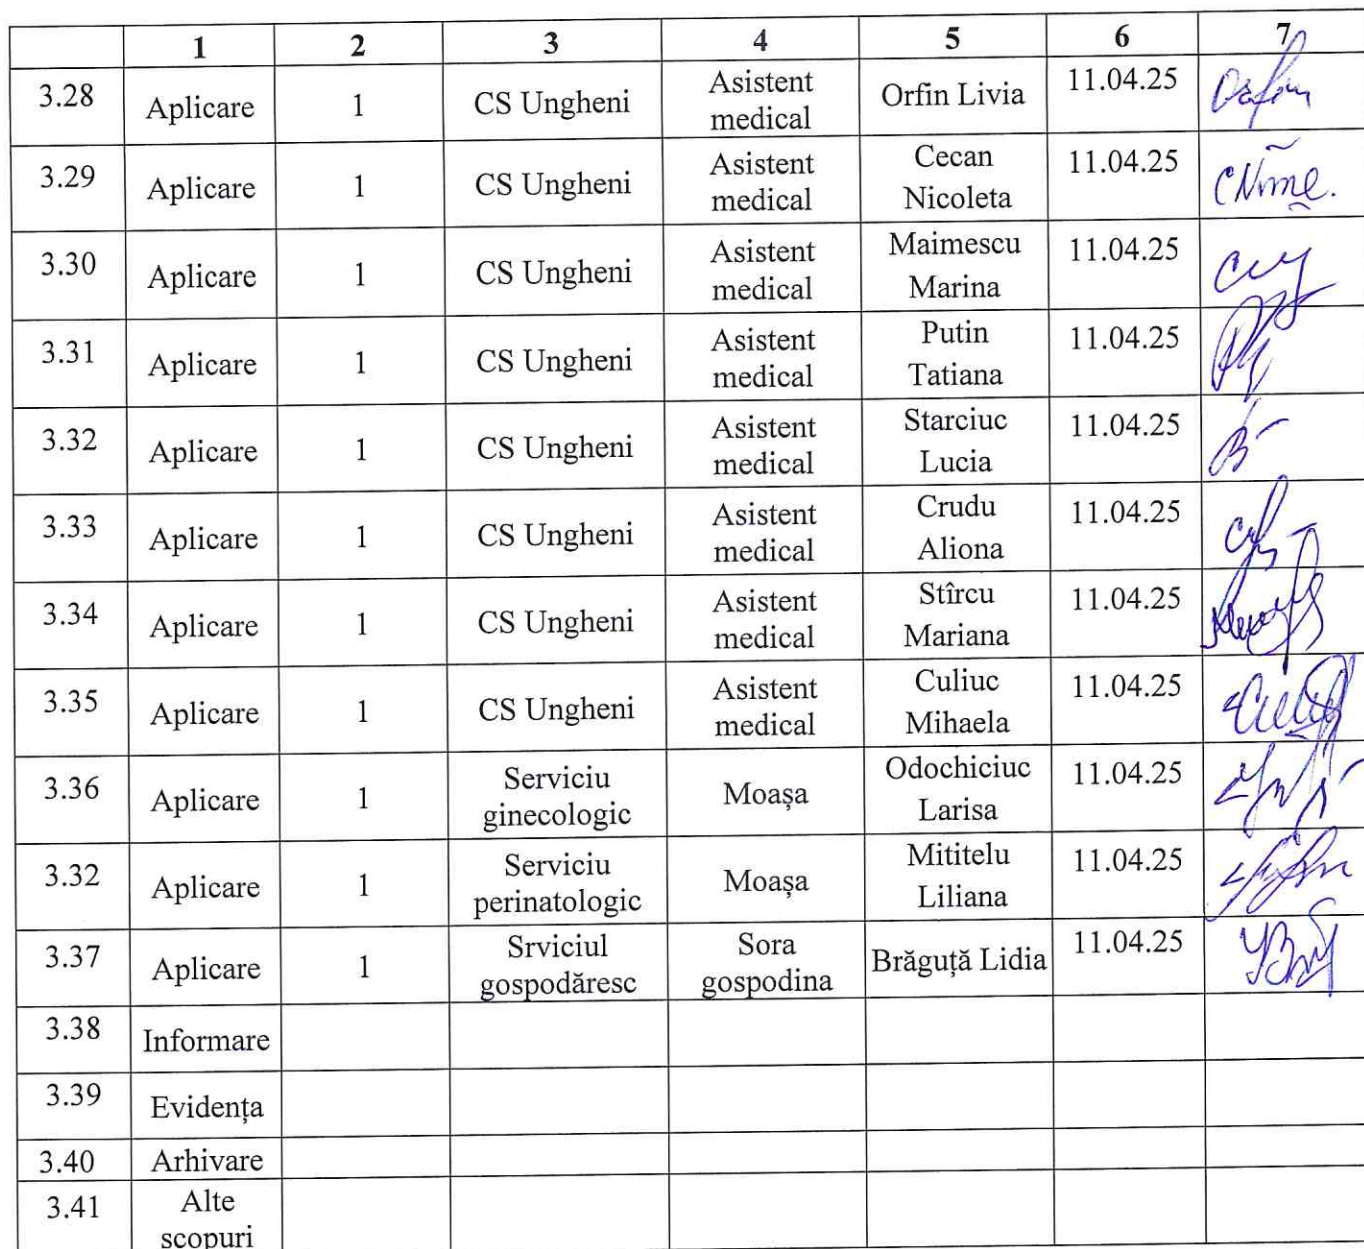 1 2 3 4 5 6 7
3.28 Aplicare 1 CS Ungheni Asistent medical Orfin Livia 11.04.25
3.29 Aplicare 1 CS Ungheni Asistent medical Cecan Nicoleta 11.04.25
3.30 Aplicare 1 CS Ungheni Asistent medical Maimescu Marina 11.04.25
3.31 Aplicare 1 CS Ungheni Asistent medical Putin Tatiana 11.04.25
3.32 Aplicare 1 CS Ungheni Asistent medical Starciuc Lucia 11.04.25
3.33 Aplicare 1 CS Ungheni Asistent medical Crudu Aliona 11.04.25
3.34 Aplicare 1 CS Ungheni Asistent medical Stîrcu Mariana 11.04.25
3.35 Aplicare 1 CS Ungheni Asistent medical Culiuc Mihaela 11.04.25
3.36 Aplicare 1 Serviciu ginecologic Moașa Odochiciuc Larisa 11.04.25
3.32 Aplicare 1 Serviciu perinatologic Moașa Mititelu Liliana 11.04.25
3.37 Aplicare 1 Srviciul gospodăresc Sora gospodina Brăguță Lidia 11.04.25
3.38 Informare
3.39 Evidența
3.40 Arhivare
3.41 Alte scopuri